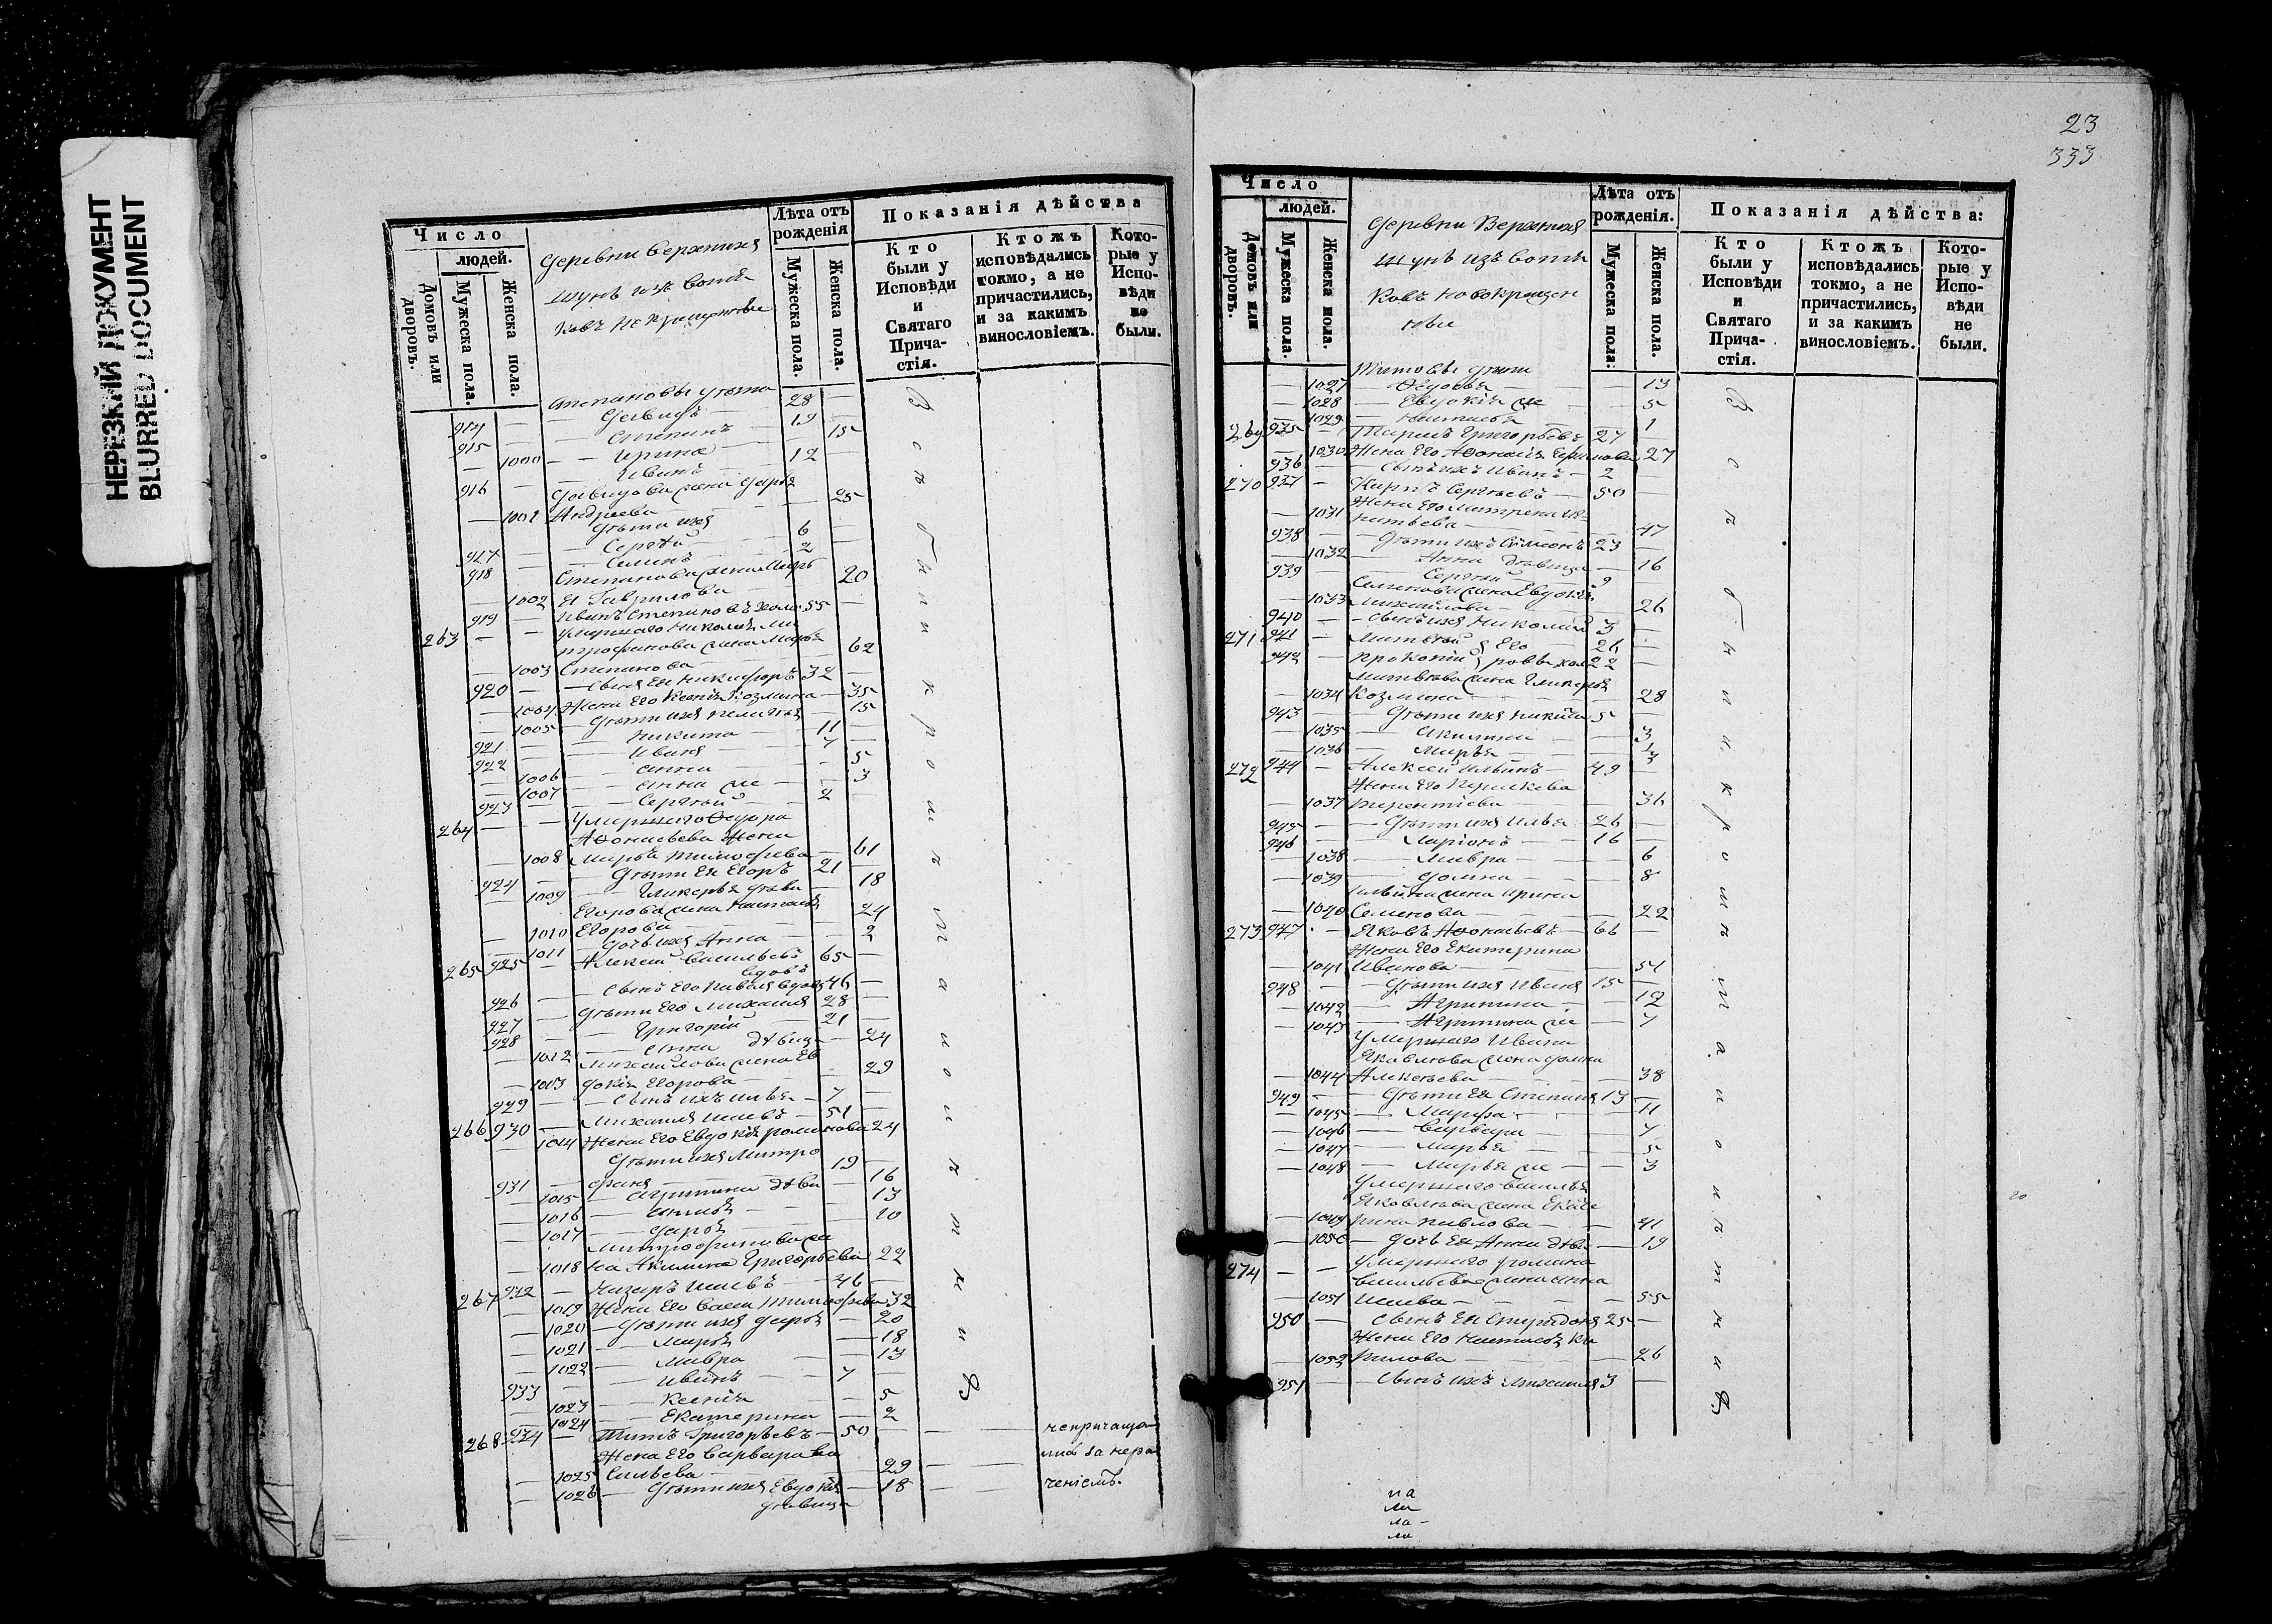 НЕРЕЗКИЙ ДОКУМЕНТ
BLURRED DOCUMENT
Число
людей.
Домовъ или дворовъ.
Мужеска пола.
Женска пола.
Деревни Верхнихъ
Шунъ изъ вотя
ковъ
Лѣта отъ рожденія
Мужеска пола.
Женска пола.
Показанія дѣйства
Кто были у Исповѣди и Святаго Прича-стія.
Ктожъ исповѣдались токмо, а не причастились, и за какимъ винословіемъ.
Кото-рые у Испо-вѣди не были.
Степановы дѣти
914 — Давидъ 28 —
915 — Степанъ — 19 —
— 1000 — Ирина — 15
916 — Иванъ — 12 —
Давидова жена Дарья
— 1001 Андреева — 25
Дѣти ихъ
917 — Сергѣй — 6 —
918 — Семенъ — 2 —
Степанова жена Марь
— 1002 я Гаврилова — 20
919 — Иванъ Степановъ холо 55 —
263 — — Умершаго Николая Ми
трофанова жена Марья
— 1003 Степанова — 62
920 — Сынъ ея Никифоръ 32 —
— 1004 Жена его Ксенія Козмина — 35
— 1005 — Дѣти ихъ Пелагѣя — 15
921 — Никита — 11 —
922 — Иванъ — 7 —
— 1006 — Анна — 5
— 1007 — Анна же — 3
923 — Сергѣй — 2 —
264 — — Умершаго Ѳедора
Аѳонасьева жена
— 1008 Марья Тимофѣева — 61
924 — Дѣти ея Егоръ 21 —
— 1009 — Гликерья дѣви — 18
Егорова жена Наталья
— 1010 Егорова — 24
— 1011 — Дочь ихъ Анна — 2
265 925 — Алексѣй Васильевъ 65 —
вдовъ
926 — Сынъ его Павелъ вдовъ 46 —
927 — Дѣти его Михаилъ 28 —
928 — Григорій — 21 —
— 1012 — Анна дѣвица — 24
Михайлова жена Ев
— 1013 докія Егорова — 29
929 — Сынъ ихъ Илья — 7 —
266 930 — Михаилъ Исаевъ — 51 —
— 1014 Жена его Евдокія Романова 24
Дѣти ихъ Митро
931 — фанъ — 19 —
— 1015 — Агрипина дѣви — 16
— 1016 — — 13
— 1017 — Дарья — 10
Митрофанова же
— 1018 на Акилина Григорьева 22
267 932 — Назаръ Исаевъ — 46 —
— 1019 Жена его Васса Тимофѣева 32
— 1020 — Дѣти ихъ Дарья — 20
— 1021 — Марья — 18
— 1022 — Мавра — 13
933 — Иванъ — 7 —
— 1023 — Ксенія — 5
— 1024 — Екатерина — 2
268 934 — Титъ Григорьевъ — 50 —
Жена его Варвара Ва
— 1025 сильева — 29
— 1026 — Дѣти ихъ Евдокія — 18
дѣвица
непричаща
лись за нера
ченіемъ.
23
333
Число
людей.
Домовъ или дворовъ.
Мужеска пола.
Женска пола.
Деревни Верхнихъ
Шунъ изъ вотя
ковъ новокрещен
ные
Лѣта отъ рожденія.
Мужеска пола:
Женска пола.
Показанія дѣйства:
Кто были у Исповѣди и Святаго Прича-стія.
Ктожъ исповѣдались токмо, а не причастились, и за какимъ винословіемъ.
Кото-рые у Испо-вѣди не были.
Титовы дѣти
— 1027 — Ѳедосья — 13
— 1028 — Евдокія же — 5
— 1029 — Наталья — 1
269 935 — Григорьевъ 27 —
— 1030 Жена его 27
936 — Сынъ ихъ Иванъ — 2 —
270 937 — Карпъ Сергѣевъ — 50 —
Жена его Матрена Иг
— 1031 натьева — 47
938 — Дѣти ихъ Симеонъ 23 —
— 1032 — Анна дѣвица — 16
939 — Сергѣй — 9
Семенова жена Евдокія
— 1033 Михайлова — 26
940 — Сынъ ихъ Николай 3 —
271 941 — Матвѣй Его — 26 —
942 — Прокопій ровы хол 22 —
Матвѣева жена Гликерья
— 1034 Козмина — 28
943 — Дѣти ихъ Никита 5 —
— 1035 — Акилина — 3
— 1036 — Марья — ½
272 944 — Алексѣй Ильинъ — 49 —
Жена его Параскева
— 1037 Терентіева — 36
945 — Дѣти ихъ Илья 26 —
946 — Ларіонъ — 16 —
— 1038 — Мавра — 6
— 1039 — Домна — 8
Ильина жена Ирина
— 1040 Семенова — 22
273 947 — Яковъ Аѳонасьевъ — 66 —
Жена его Екатерина
— 1041 Иванова — 51
948 — Дѣти ихъ Иванъ 15 —
— 1042 — Агрипина — 12
— 1043 — Агрипина же — 7
Умершаго Ивана
Яковлева жена Домна
— 1044 Алексѣева — 38
949 — Дѣти ея Степанъ 13 —
— 1045 — Марфа — 11
— 1046 — Варвара — 7
— 1047 — Марья — 5
— 1048 — Марья же — 3
Умершаго Василья
Яковлева жена Екате
— 1049 рина Павлова — 41
— 1050 — Дочь ея Анна дѣви — 19
274 — — Умершаго Романа
Васильева жена Анна
— 1051 Исаева — 55
950 — Сынъ ея Спиридонъ 25 —
Жена его Наталья Ка
— 1052 рилова — 26
951 — Сынъ ихъ Михаилъ 3 —